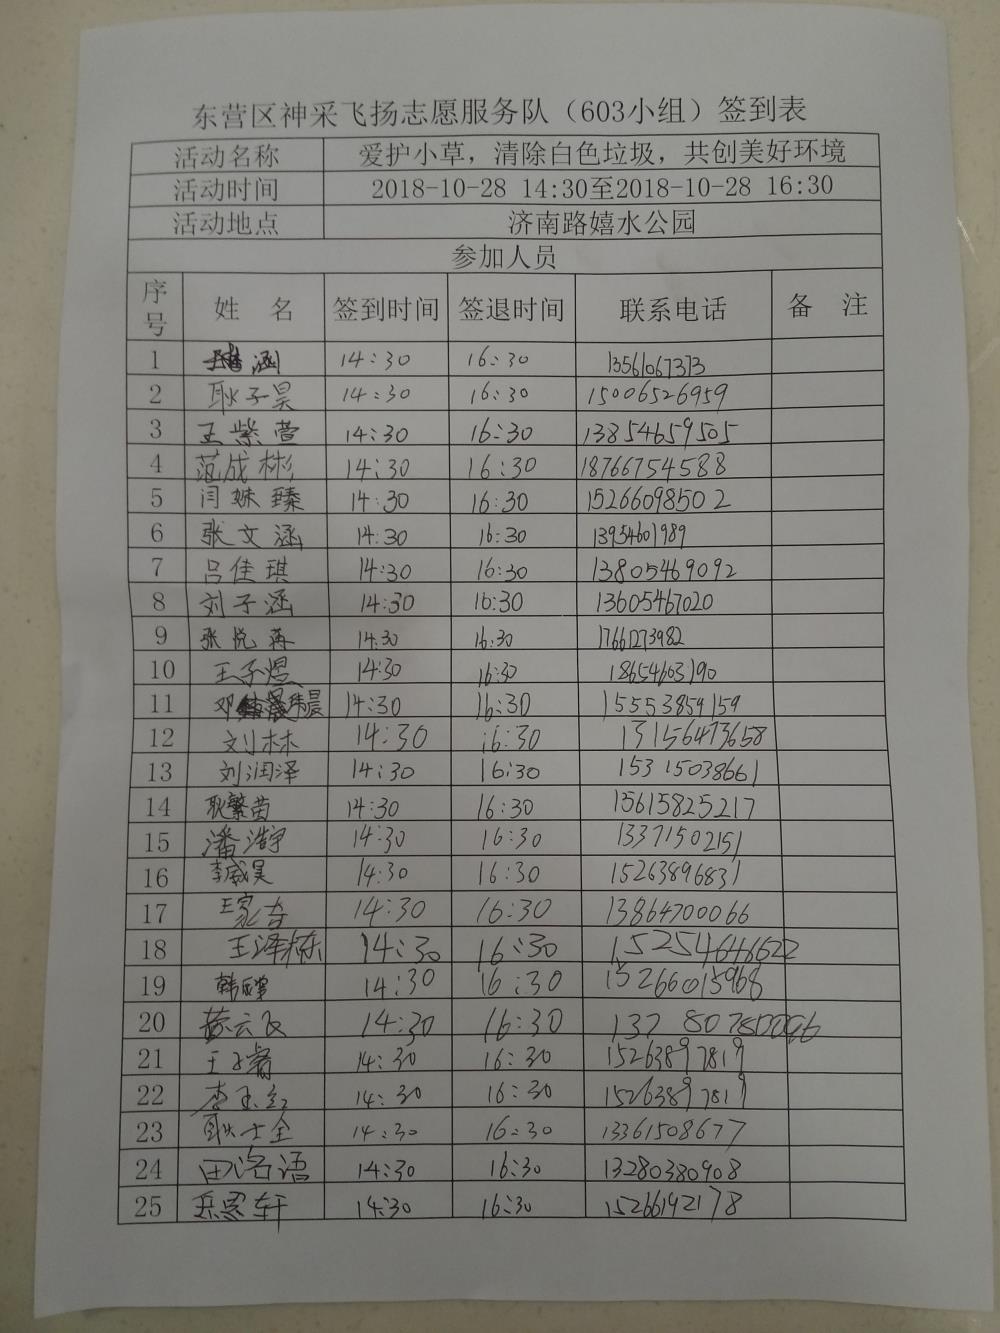 东营区神采飞扬志愿服务队（603小组）签到表
活动名称 爱护小草，清除白色垃圾，共创美好环境
活动时间 2018-10-28 14:30至2018-10-28 16:30
活动地点 济南路嬉水公园
参加人员
序号 姓 名 签到时间 签退时间 联系电话 备 注
1 涵 14:30 16:30 13561067373
2 耿子昊 14:30 16:30 15006526959
3 王紫萱 14:30 16:30 13854659505
4 范成彬 14:30 16:30 18766754588
5 闫姝臻 14:30 16:30 15266098502
6 张文涵 14:30 16:30 13954601989
7 吕佳琪 14:30 16:30 13805469092
8 刘子涵 14:30 16:30 13605467020
9 张悦苒 14:30 16:30 17661273982
10 王子煜 14:30 16:30 18654603190
11 邓 晨 14:30 16:30 15553859159
12 刘林 14:30 16:30 13156473658
13 刘润泽 14:30 16:30 15315038661
14 耿繁茵 14:30 16:30 13615825217
15 潘浩宇 14:30 16:30 13371502151
16 李威昊 14:30 16:30 15263896831
17 王家奇 14:30 16:30 13864700066
18 王泽栋 14:30 16:30 15254646622
19 韩 14:30 16:30 15266015968
20 云飞 14:30 16:30
21 王子睿 14:30 16:30 15263897819
22 李玉红 14:30 16:30 15263897819
23 耿士全 14:30 16:30 13361508677
24 田洺语 14:30 16:30 13280380908
25 岳恩轩 14:30 16:30 15266192178